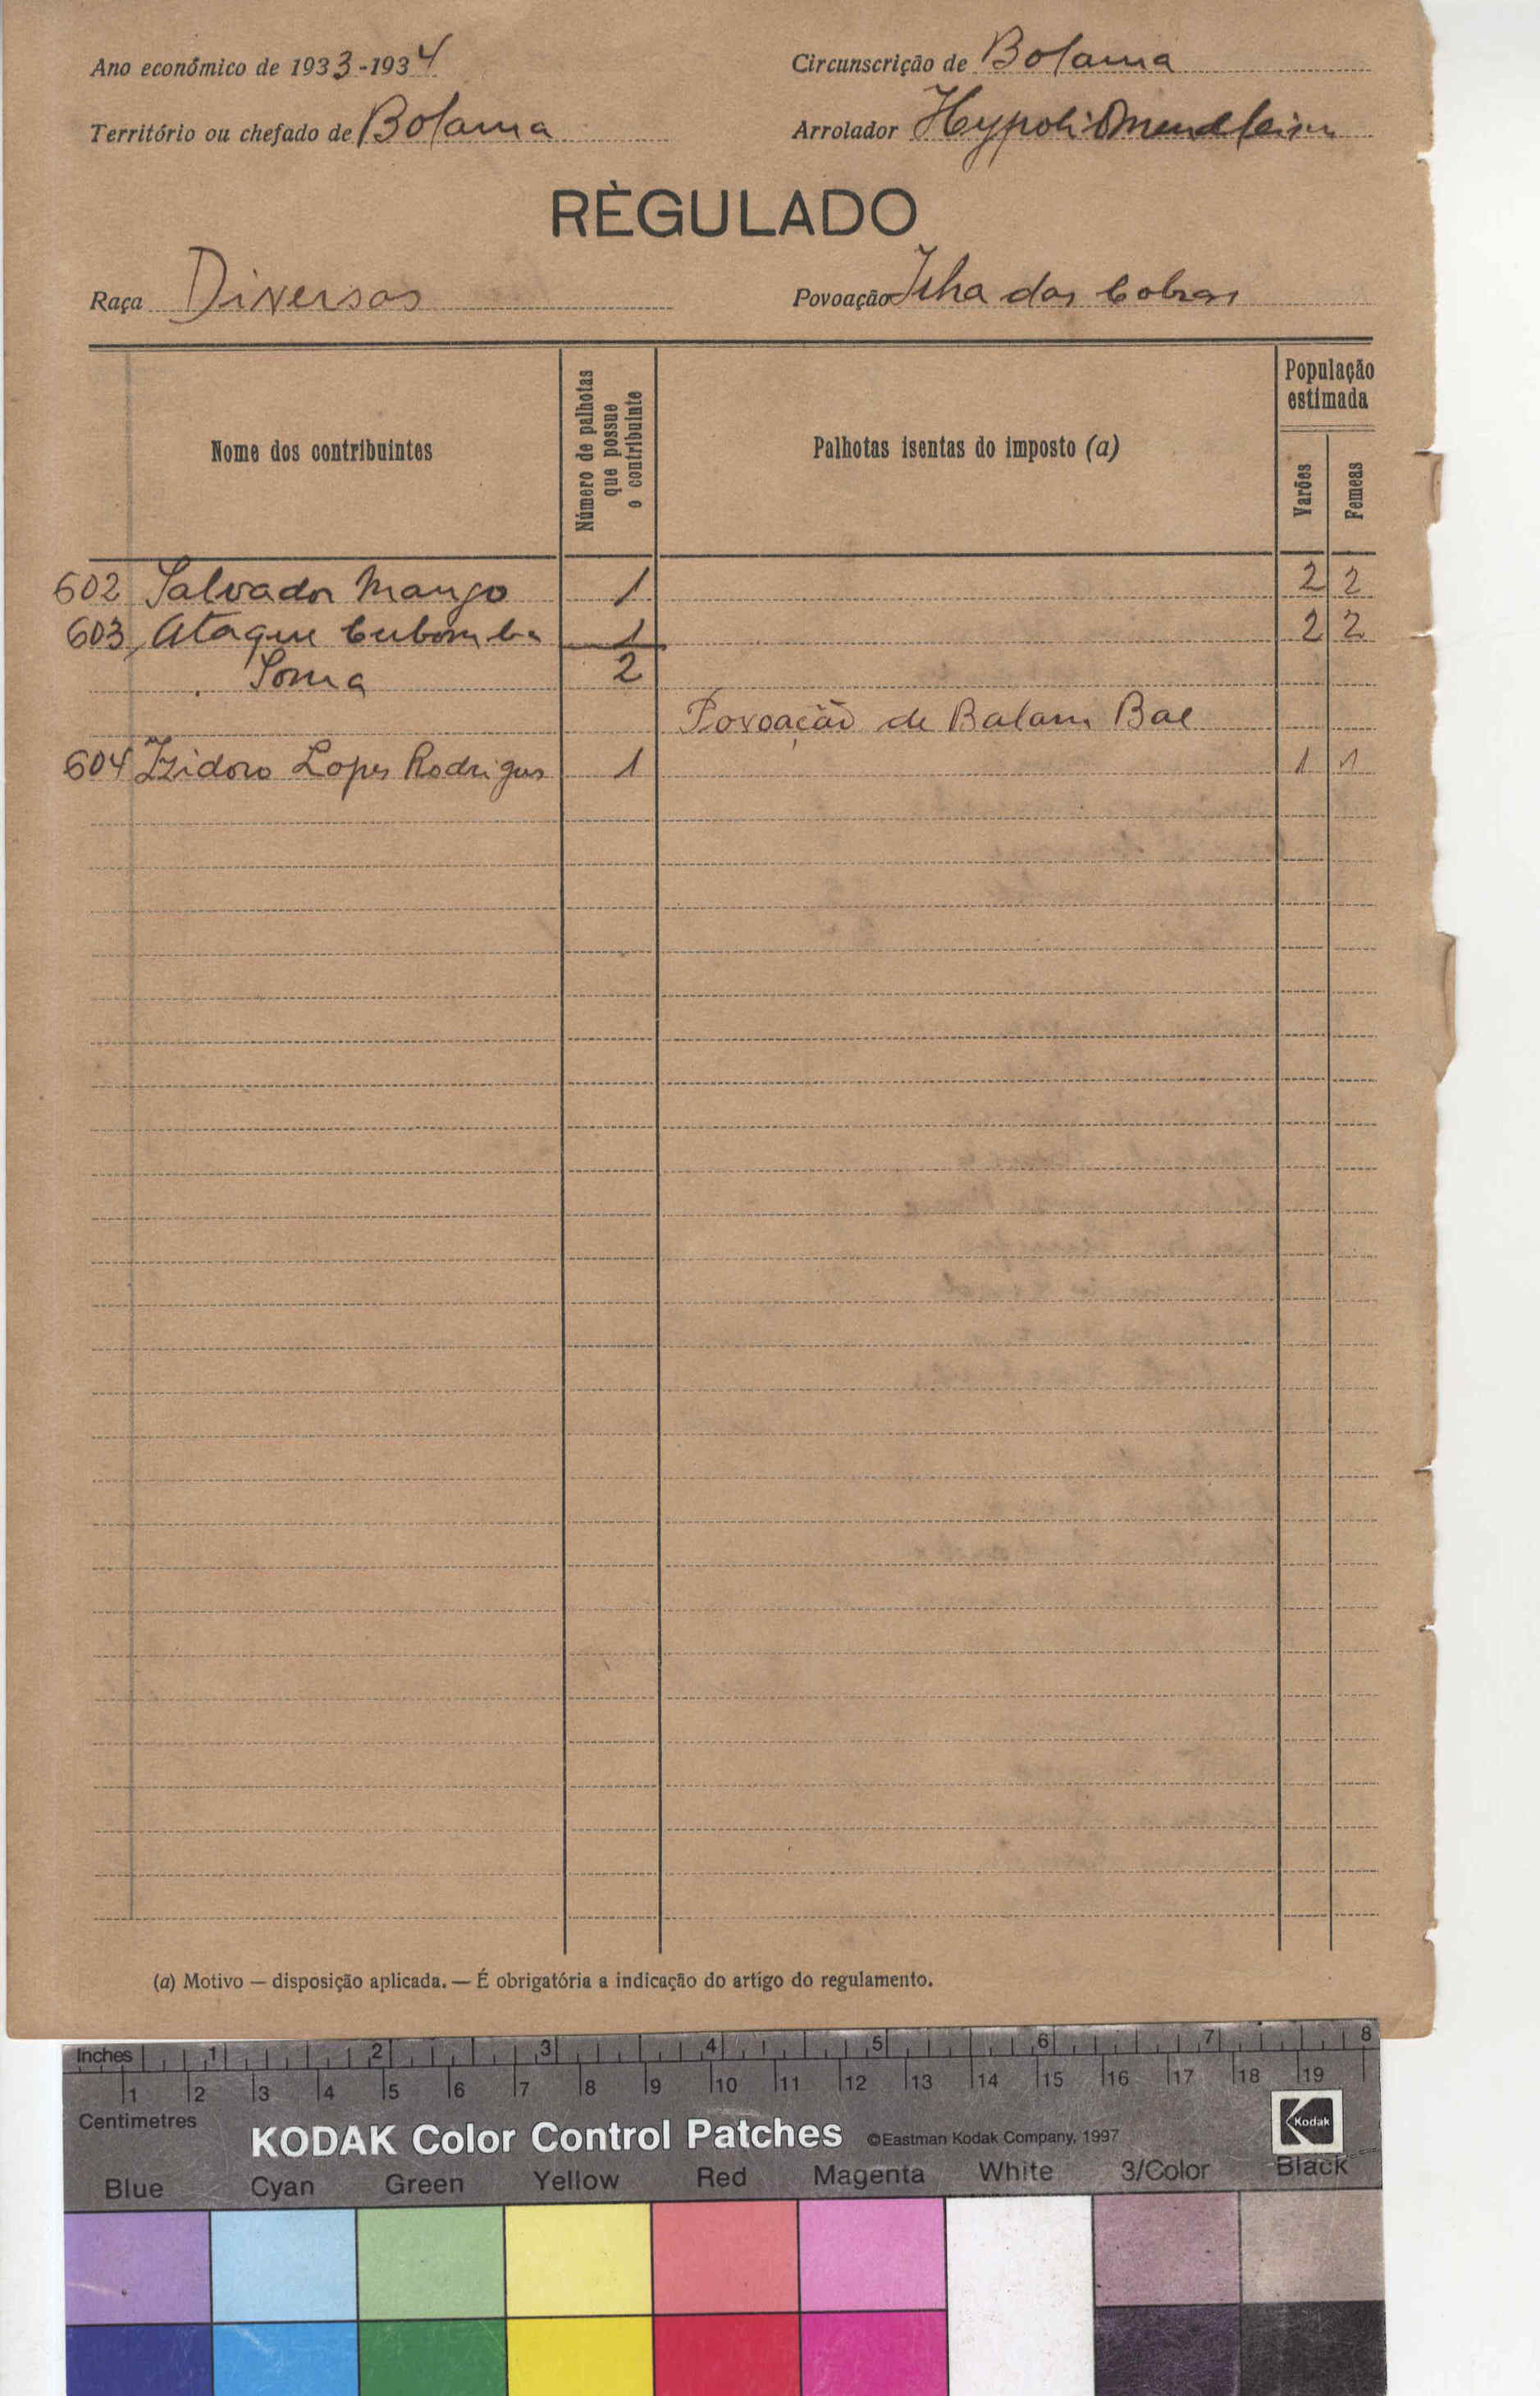 Ano económico de 1933-1934
Circunscrição de Bolama
Território ou chefado de Bolama
Arrolador Hypolito
RÈGULADO
Raça Diversos
Povoação Ilha das Cobras
Nome dos contribuintes
Número de palhotas que possue o contribuinte
Palhotas isentas do imposto (a)
População estimada
Varões
Femeas
602 Salvador Mango 1 2 2
603 Ataque 1 2 2
Soma 2
Povoação de Balam Bae
604 Izidoro Lopes Rodrigues 1 1 1
(a) Motivo — disposição aplicada. — É obrigatória a indicação do artigo do regulamento.
Inches 1 2 3 4 5 6 7 8
1 2 3 4 5 6 7 8 9 10 11 12 13 14 15 16 17 18 19
Centimetres
KODAK Color Control Patches ©Eastman Kodak Company, 1997 Kodak
Blue Cyan Green Yellow Red Magenta White 3/Color Black